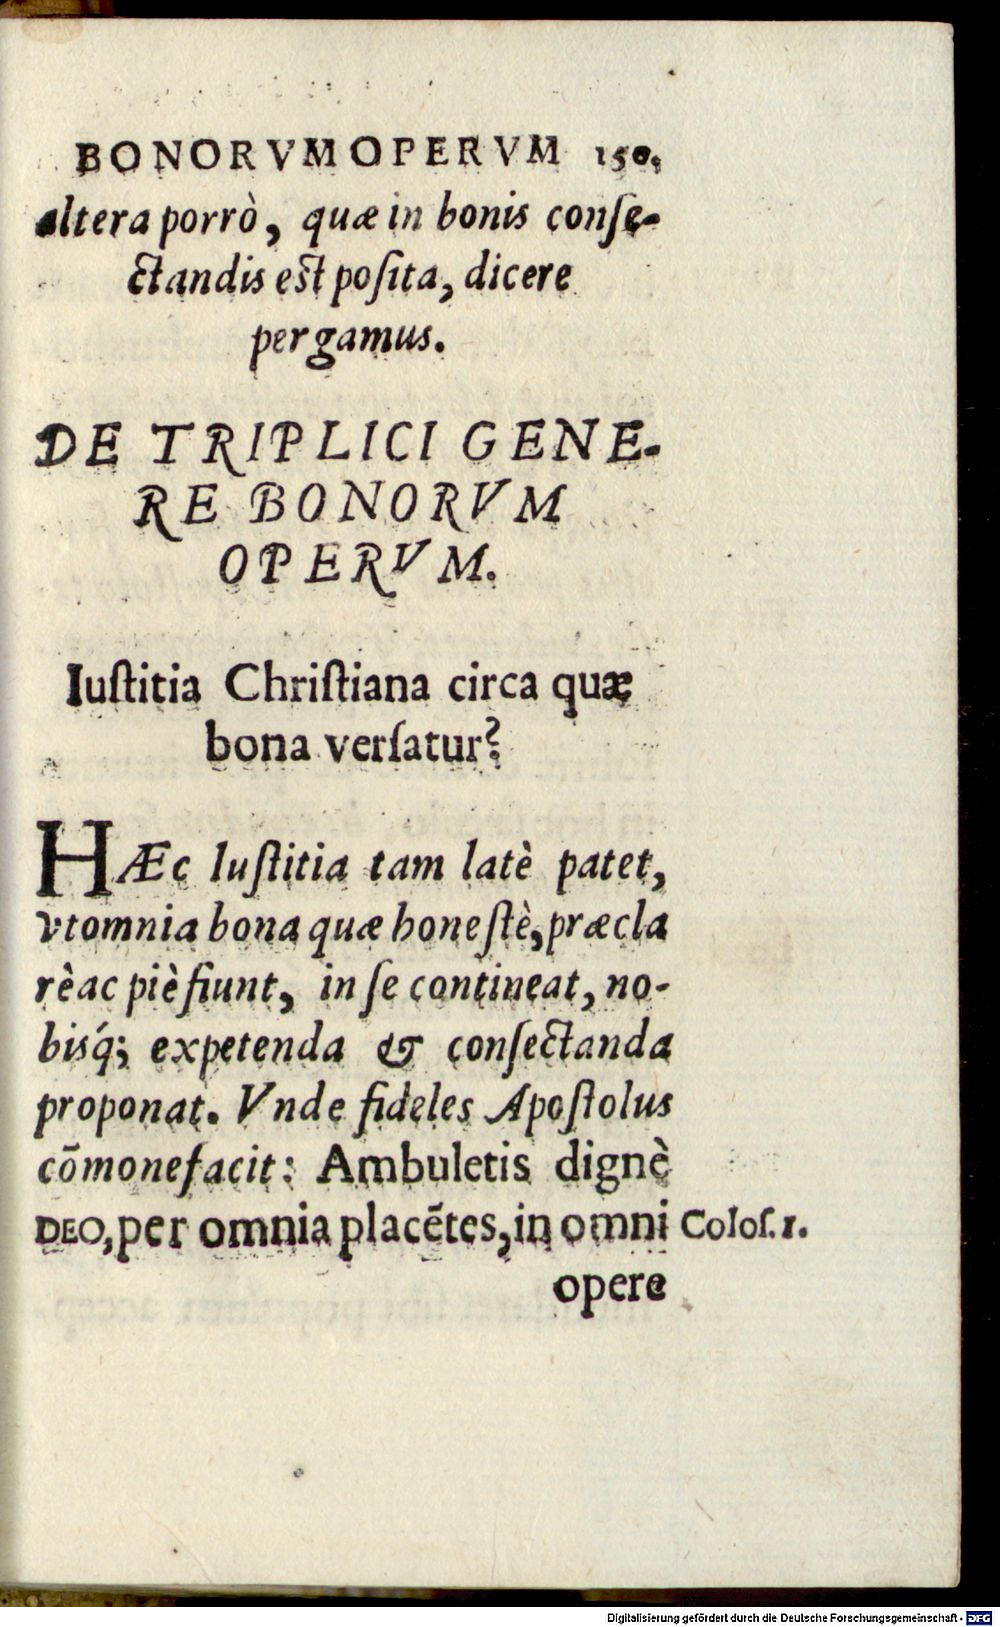 BONORVM OPERVM 150.
altera porrò, quæ in bonis conſe-
ctandis est poſita, dicere
pergamus.
DE TRIPLICI GENE-
RE BONORVM
OPERVM.
Iuſtitia Chriſtiana circa quæ
bona verſatur?
HÆc Iuſtitia tam latè patet,
vt omnia bona quæ honeſtè, præcla
rè ac piè fiunt, in ſe contineat, no-
bisq́; expetenda & conſectanda
proponat. Vnde fideles Apoſtolus
cōmonefacit: Ambuletis dignè
DEO, per omnia placētes, in omni Coloſ. 1.
opere
Digitalisierung gefördert durch die Deutsche Forschungsgemeinschaft - DFG